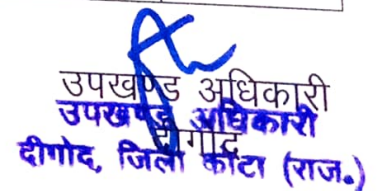 उपखण्ड अधिकारी
दीगोद
उपखण्ड अधिकारी
दीगोद, जिला कोटा (राज.)